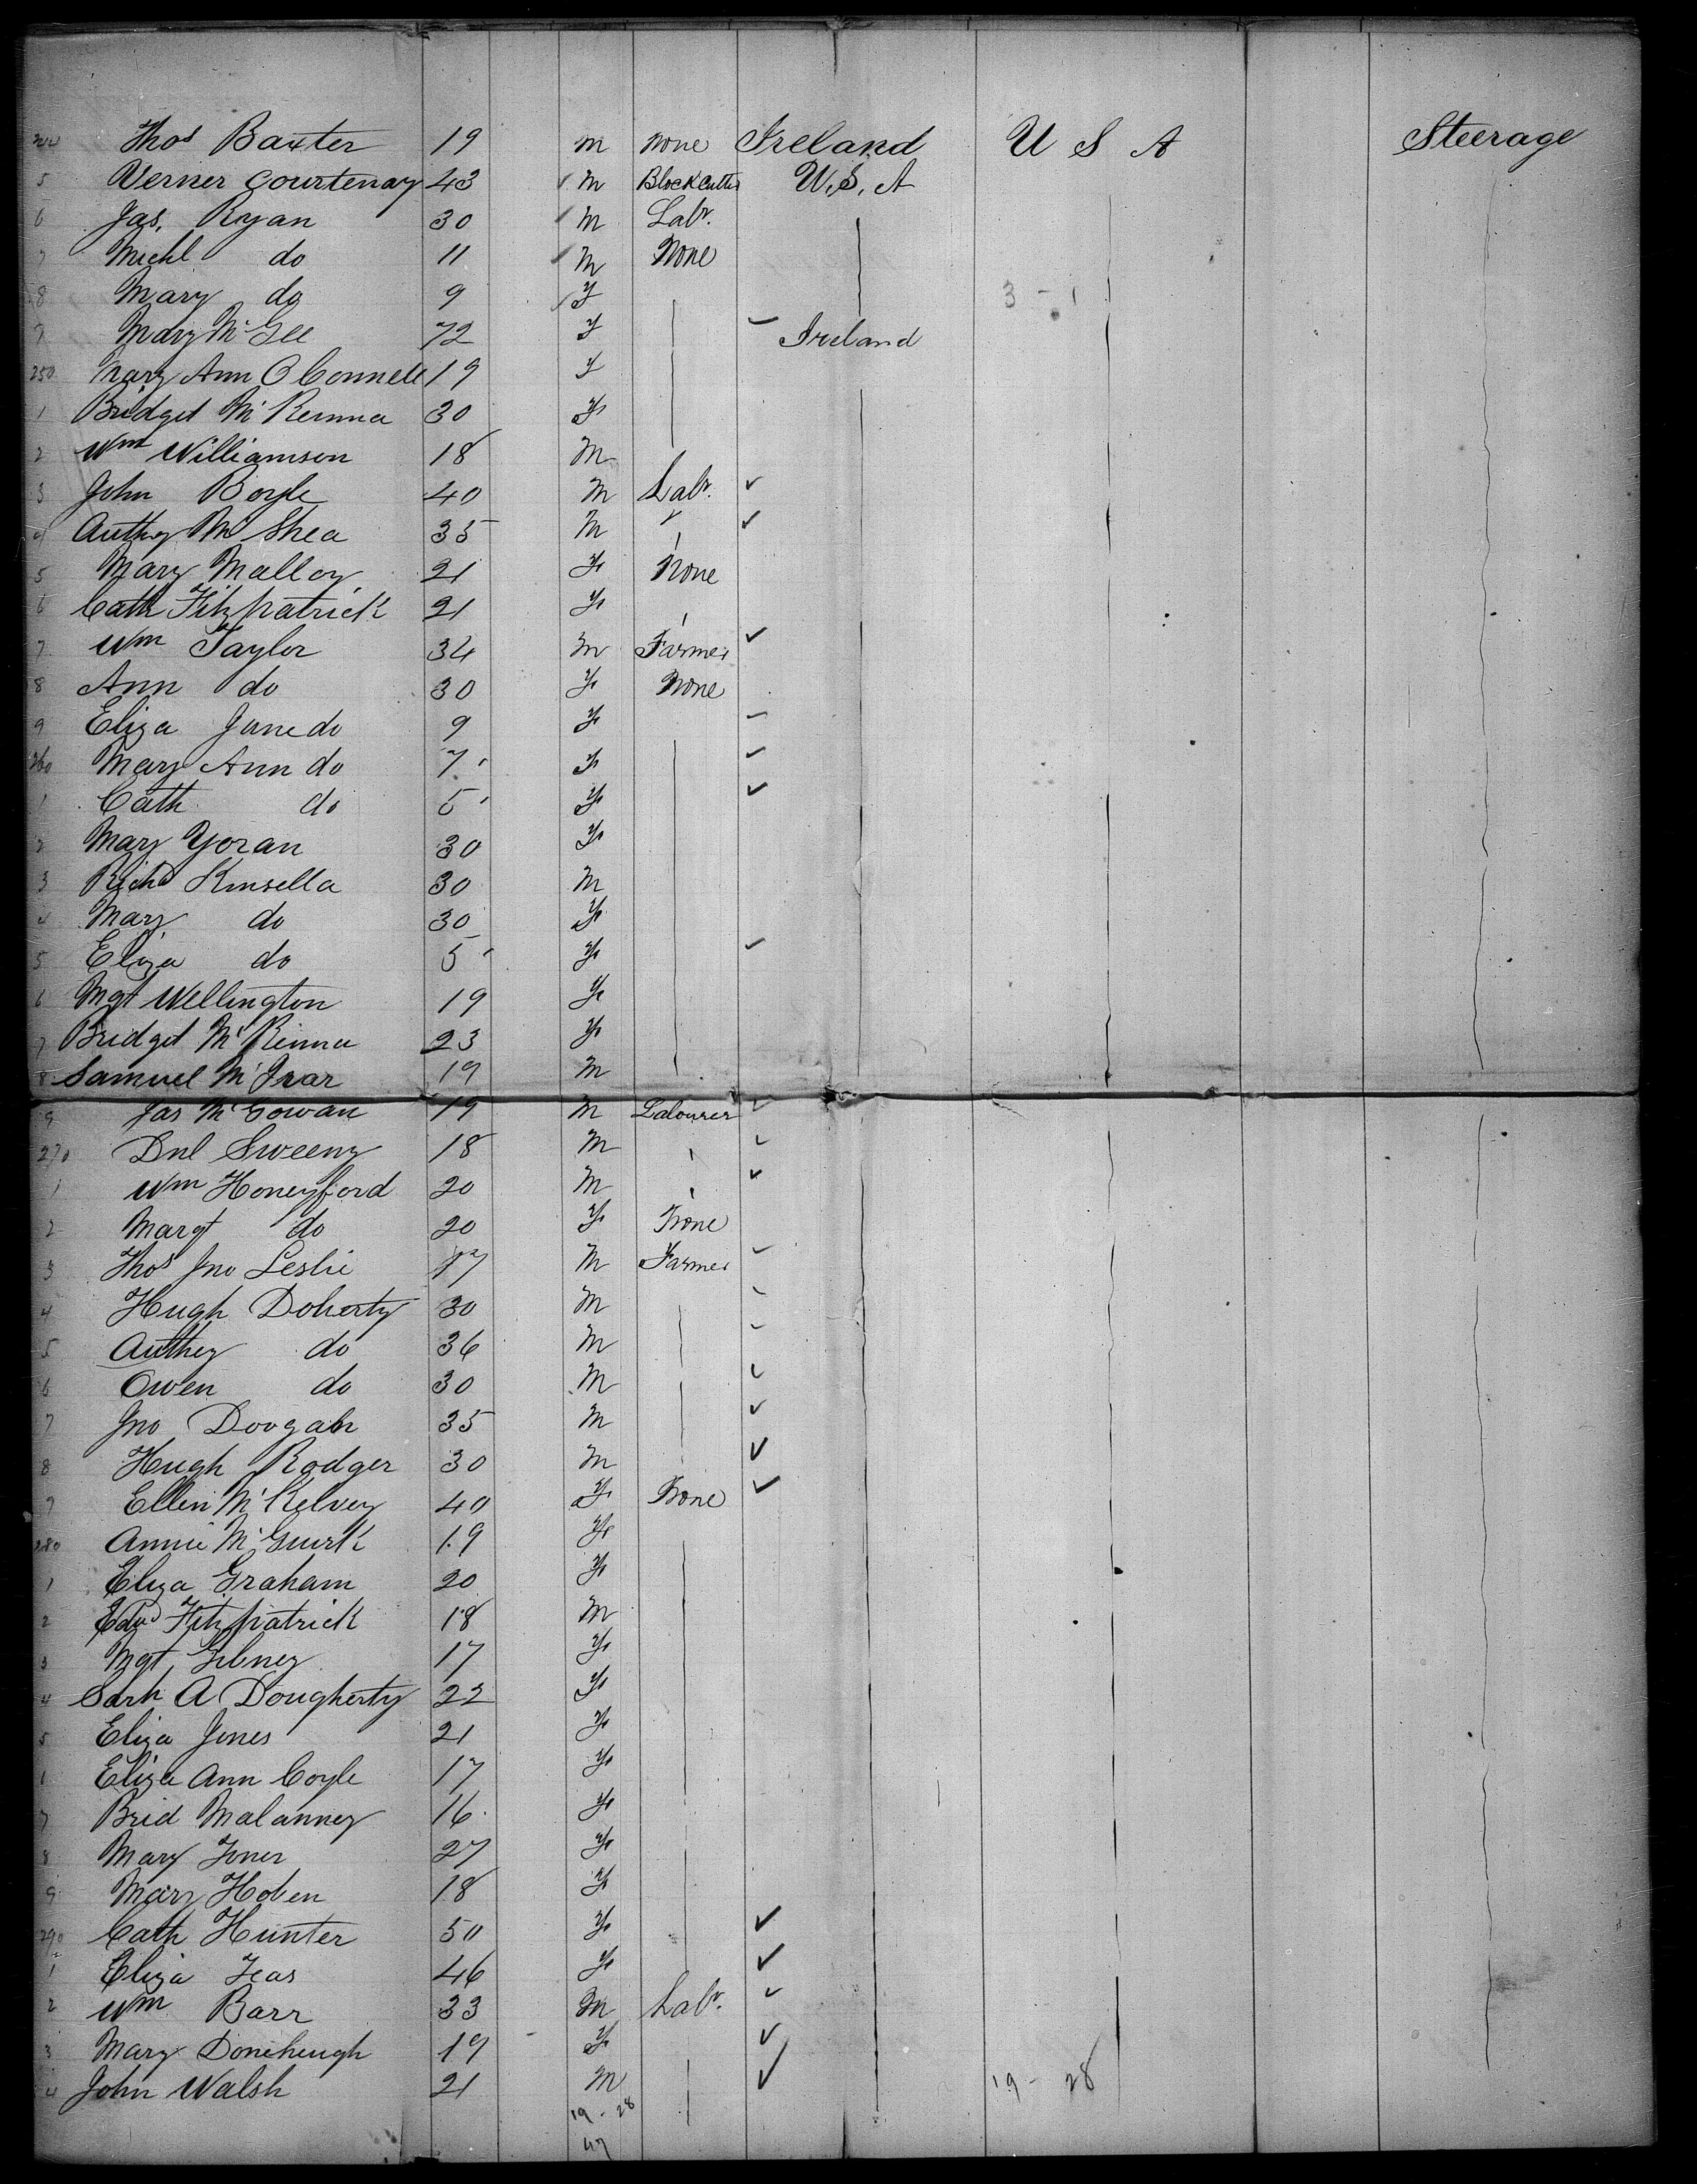 244 Thos Baxter 19 M None Ireland U S A Steerage
5 Verner Courtenay 43 M Blockcutter U.S.A
6 Jas. Ryan 30 M Labr.
7 Michl do 11 M None
8 Mary do 9 F 3 - 1
9 Mary McGee 72 F Ireland
250 Mary Ann O Connell 19 F
1 Bridget McKenna 30 F
2 Wm Williamson 18 M
3 John Boyle 40 M Labr.
4 Anthy McShea 35 M
5 Mary Malloy 21 F None
6 Cath Fitzpatrick 21 F
7 Wm Taylor 34 M Farmer
8 Ann do 30 F None
9 Eliza Jane do 9 F
260 Mary Ann do 7 F
1 Cath do 5 F
2 Mary Yoran 30 F
3 Richd Kinsella 30 M
4 Mary do 30 F
5 Eliza do 5 F
6 Mgt Wellington 19 F
7 Bridget McKinna 23 F
8 Samuel 19 M
9 Jas McGowan 19 M Labourer
270 Dnl Sweeny 18 M
1 Wm Honeyford 20 M
2 Margt do 20 F None
3 Thos Jno Leslie 17 M Farmer
4 Hugh Doherty 30 M
5 Anthey do 36 M
6 Owen do 30 M
7 Jno Doogan 35 M
8 Hugh Rodger 30 M
9 Ellen McKelvey 40 F None
280 Annie McGuirk 19 F
1 Eliza Graham 20 F
2 Edwd Fitzpatrick 18 M
3 Mgt Gibney 17 F
4 Sarh A Dougherty 22 F
5 Eliza Jones 21 F
6 Eliza Ann Coyle 17 F
7 Brid Malanney 16 F
8 Mary Jones 27 F
9 Mary Hoben 18 F
290 Cath Hunter 50 F
1 Eliza 46 F
2 Wm Barr 33 M Labr.
3 Mary Doneheugh 19 F
4 John Walsh 21 M 19 - 28
19 - 28
47